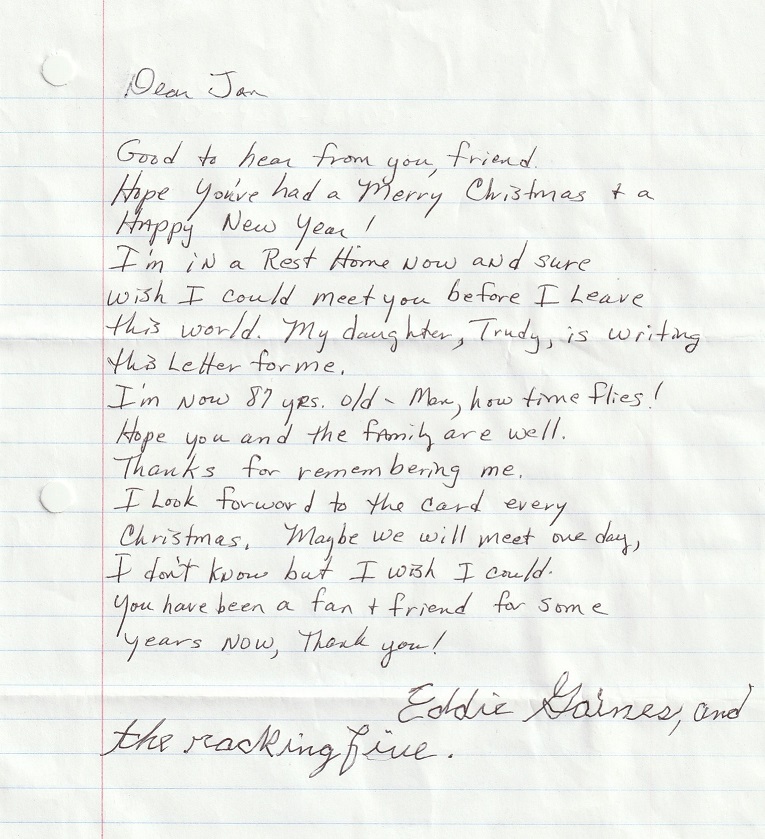 Dear Jan
Good to hear from you, friend.
Hope You've had a Merry Christmas + a
Happy New Year!
I'm in a Rest Home now and sure
wish I could meet you before I Leave
this world. My daughter, Trudy, is writing
this Letter for me.
I'm now 87 yrs. old - Man, how time flies!
Hope you and the family are well.
Thanks for remembering me.
I Look forward to the card every
Christmas. Maybe we will meet one day,
I don't know but I wish I could.
You have been a fan + friend for some
years now, Thank you!
Eddie Gaines, and
the racking five.